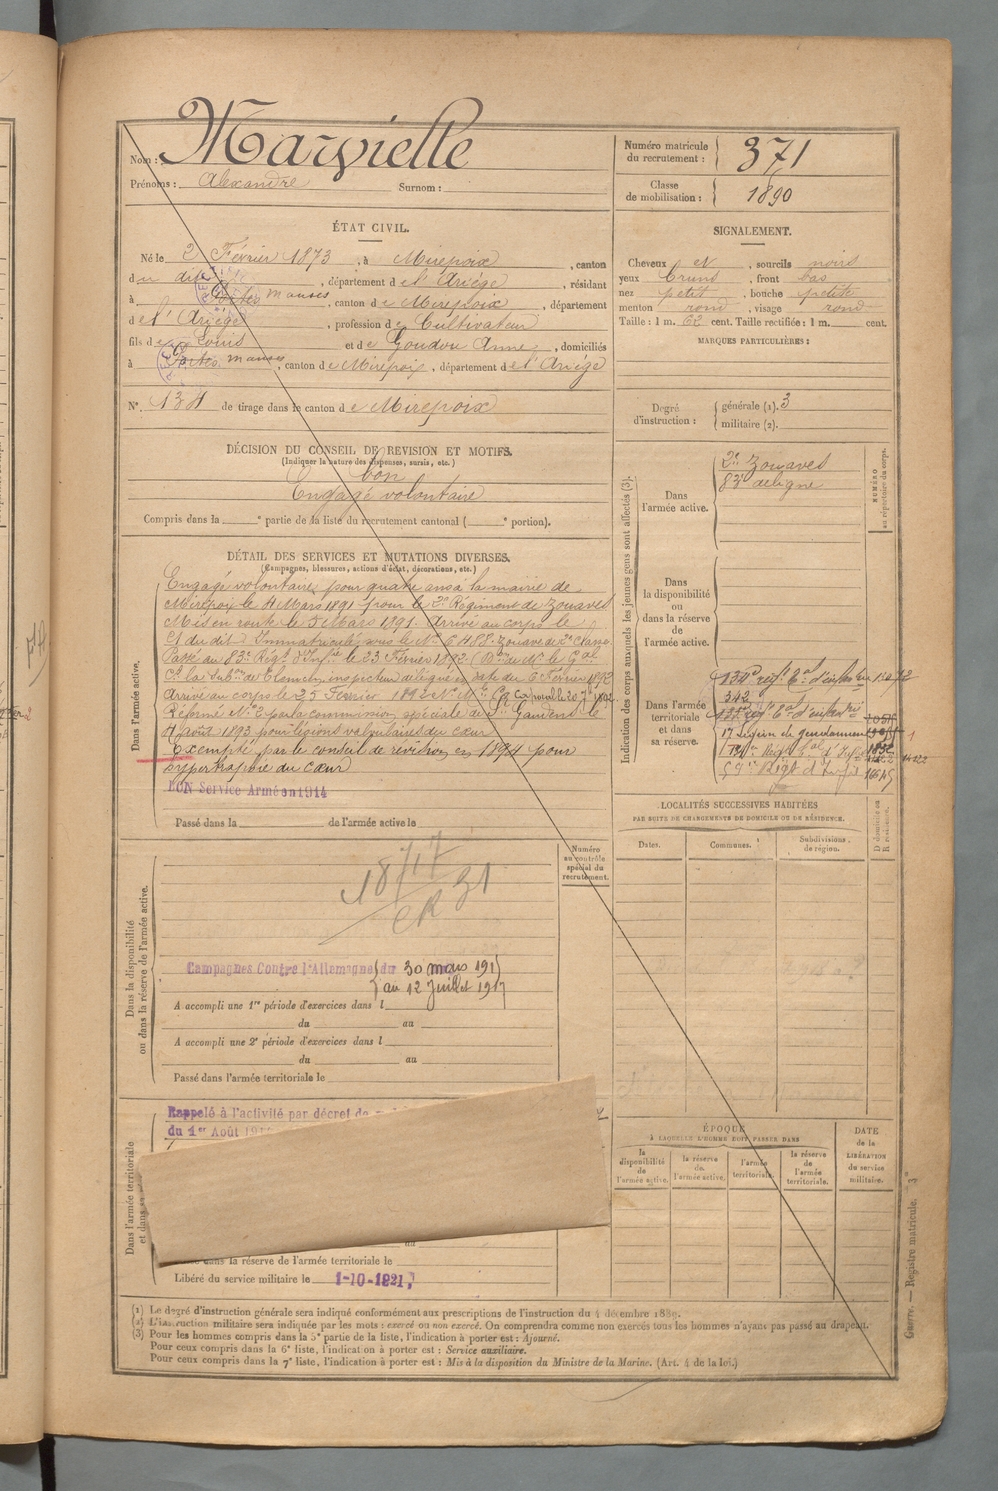 Nom : Marvielle
Prénoms : Alexandre Surnom :
Numéro matricule
du recrutement : 371
Classe
de mobilisation : 1890
ÉTAT CIVIL.
Né le 2 Février 1873, à Mirepoix, canton
du dit, département de l'Ariège, résidant
à Portes manses, canton de Mirepoix, département
de l'Ariège, profession de Cultivateur
fils de Louis et de Goudou Anne, domiciliés
à Portes manses, canton de Mirepoix, département de l'Ariège
N°. 134 de tirage dans le canton de Mirepoix
SIGNALEMENT.
Cheveux et, sourcils noirs
yeux bruns, front bas
nez petit, bouche petite
menton rond, visage rond
Taille : 1 m. 62 cent. Taille rectifiée : 1 m. cent.
MARQUES PARTICULIÈRES :
Degré
d'instruction :
générale (1). 3
militaire (2).
DÉCISION DU CONSEIL DE REVISION ET MOTIFS.
(Indiquer la nature des dispenses, sursis, etc.)
bon
Engagé volontaire
Compris dans la e partie de la liste du recrutement cantonal ( e portion).
DÉTAIL DES SERVICES ET MUTATIONS DIVERSES.
(Campagnes, blessures, actions d'éclat, décorations, etc.)
Dans l'armée active.
Engagé volontaire pour quatre ans à la mairie de
Mirepoix le 4 Mars 1891 pour le 2e Régiment de Zouaves
Mis en route le 5 Mars 1891. Arrivé au corps le
et du dit Immatriculé sous le No Zouave de 2e Classe
Passé au 83e Régt d'Infie le 23 Février 1892
Arrivé au corps le 25 Février 1892 Caporal le
Réformé No 2 par la commission spéciale de St Gaudens le
4 août 1893 pour lésions valvulaires du cœur
Exempté par le conseil de révision en 1894 pour
hypertrophie du cœur
BON Service Armé en 1914
Passé dans la de l'armée active le
Indication des corps auxquels les jeunes gens sont affectés (3).
NUMÉRO
au répertoire du corps.
Dans
l'armée active.
2e Zouaves
83e de ligne
Dans
la disponibilité
ou
dans la réserve
de
l'armée active.
Dans l'armée
territoriale
et dans
sa réserve.
134e regt Tal d'infanterie
342
regt Tal d'infanterie
17 Légion de gendarmerie
Régt Tal d'Infie
59e Régt d'Infie
Dans la disponibilité
ou dans la réserve de l'armée active.
Numéro
au contrôle
spécial du
recrutement.
1871
CR 31
Campagnes Contre l'Allemagne du 30 mars 191
au 12 Juillet 1917
A accompli une 1re période d'exercices dans l
du au
A accompli une 2e période d'exercices dans l
du au
Passé dans l'armée territoriale le
LOCALITÉS SUCCESSIVES HABITÉES
PAR SUITE DE CHANGEMENTS DE DOMICILE OU DE RÉSIDENCE.
Dates. Communes. Subdivisions de région. D domicile ou R résidence.
Dans l'armée territoriale
et dans
Rappelé à l'activité par décret de
du 1er Août
dans la réserve de l'armée territoriale le
Libéré du service militaire le 1-10-1921
ÉPOQUE
À LAQUELLE L'HOMME DOIT PASSER DANS
la disponibilité de l'armée active.
la réserve de l'armée active.
l'armée territoriale.
la réserve de l'armée territoriale.
DATE de la LIBÉRATION du service militaire.
(1) Le degré d'instruction générale sera indiqué conformément aux prescriptions de l'instruction du 4 décembre 1889.
(2) L'instruction militaire sera indiquée par les mots : exercé ou non exercé. On comprendra comme non exercés tous les hommes n'ayant pas passé au drapeau.
(3) Pour les hommes compris dans la 5e partie de la liste, l'indication à porter est : Ajourné.
Pour ceux compris dans la 6e liste, l'indication à porter est : Service auxiliaire.
Pour ceux compris dans la 7e liste, l'indication à porter est : Mis à la disposition du Ministre de la Marine. (Art. 4 de la loi.)
Guerre. — Registre matricule. 3e